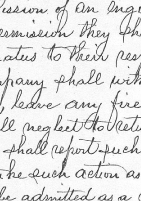 ission of an Engi
ermission they sh
ates to their res
pany shall with
leave any fire
ll neglect to retu
shall report such
ake such action as
be admitted as a